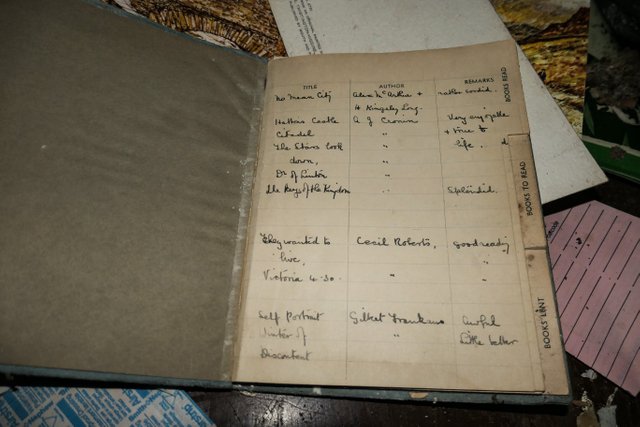 TITLE AUTHOR REMARKS
No Mean City Alex McArthur + rather sordid.
H Kingsley Long.
Hatters Castle A J Cronin Very enjoyable
Citadel " + true to
The Stars look " life.
down,
Dr of Lintor "
The Keys of the Kingdom " Splendid.
They wanted to Cecil Roberts, good reading
live,
Victoria 4.30. " "
Self Portrait Gilbert Frankau Awful
Winter of " little better
Discontent
BOOKS READ
BOOKS TO READ
BOOKS LENT